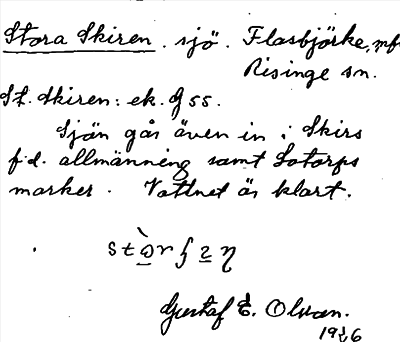 Stora Skiren. sjö. Flasbjörke, mfl
Risinge sn.
St. Skiren: ek. G 55.
Sjön går även in i Skirs
f.d. allmänning samt Sotorps
marker. Vattnet är klart.
Gustaf E. Olsson.